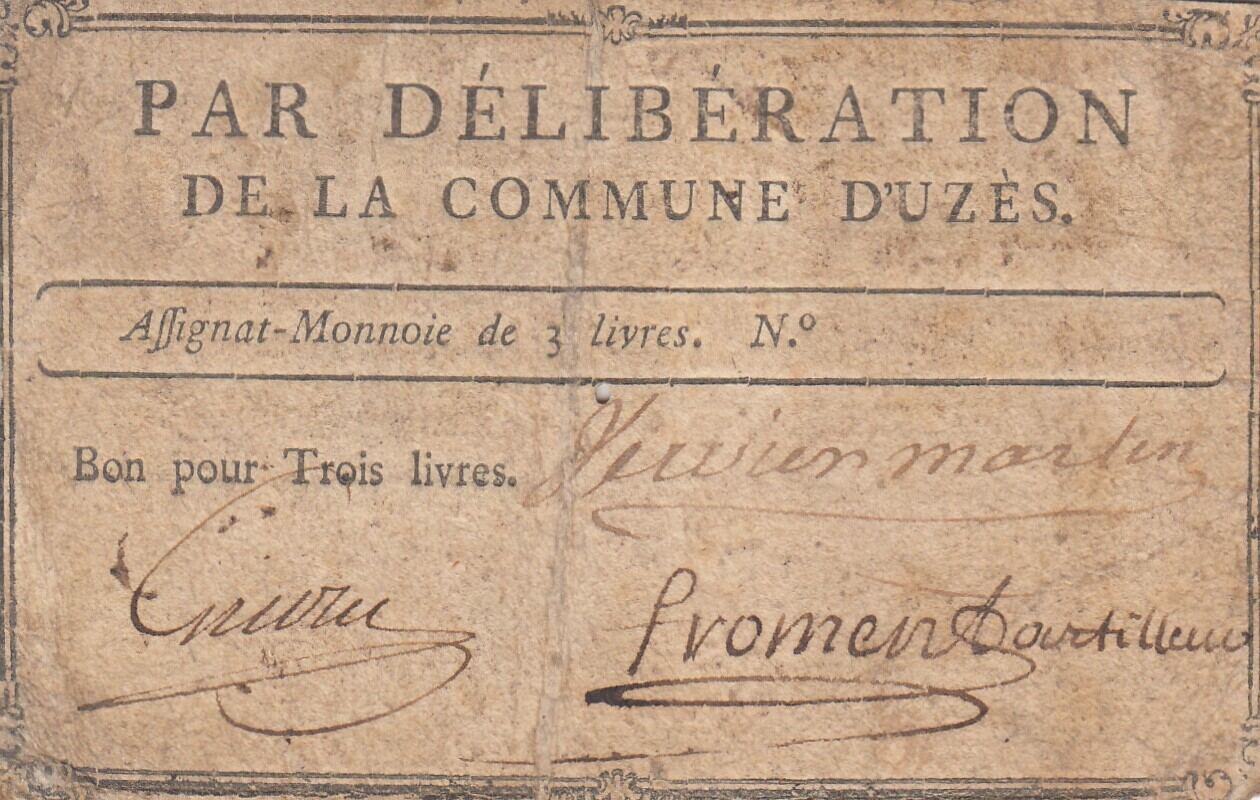 PAR DÉLIBÉRATION
DE LA COMMUNE D'UZÈS.
Assignat-Monnoie de 3 livres. N.º
Bon pour Trois livres.
martin
froment artilleur